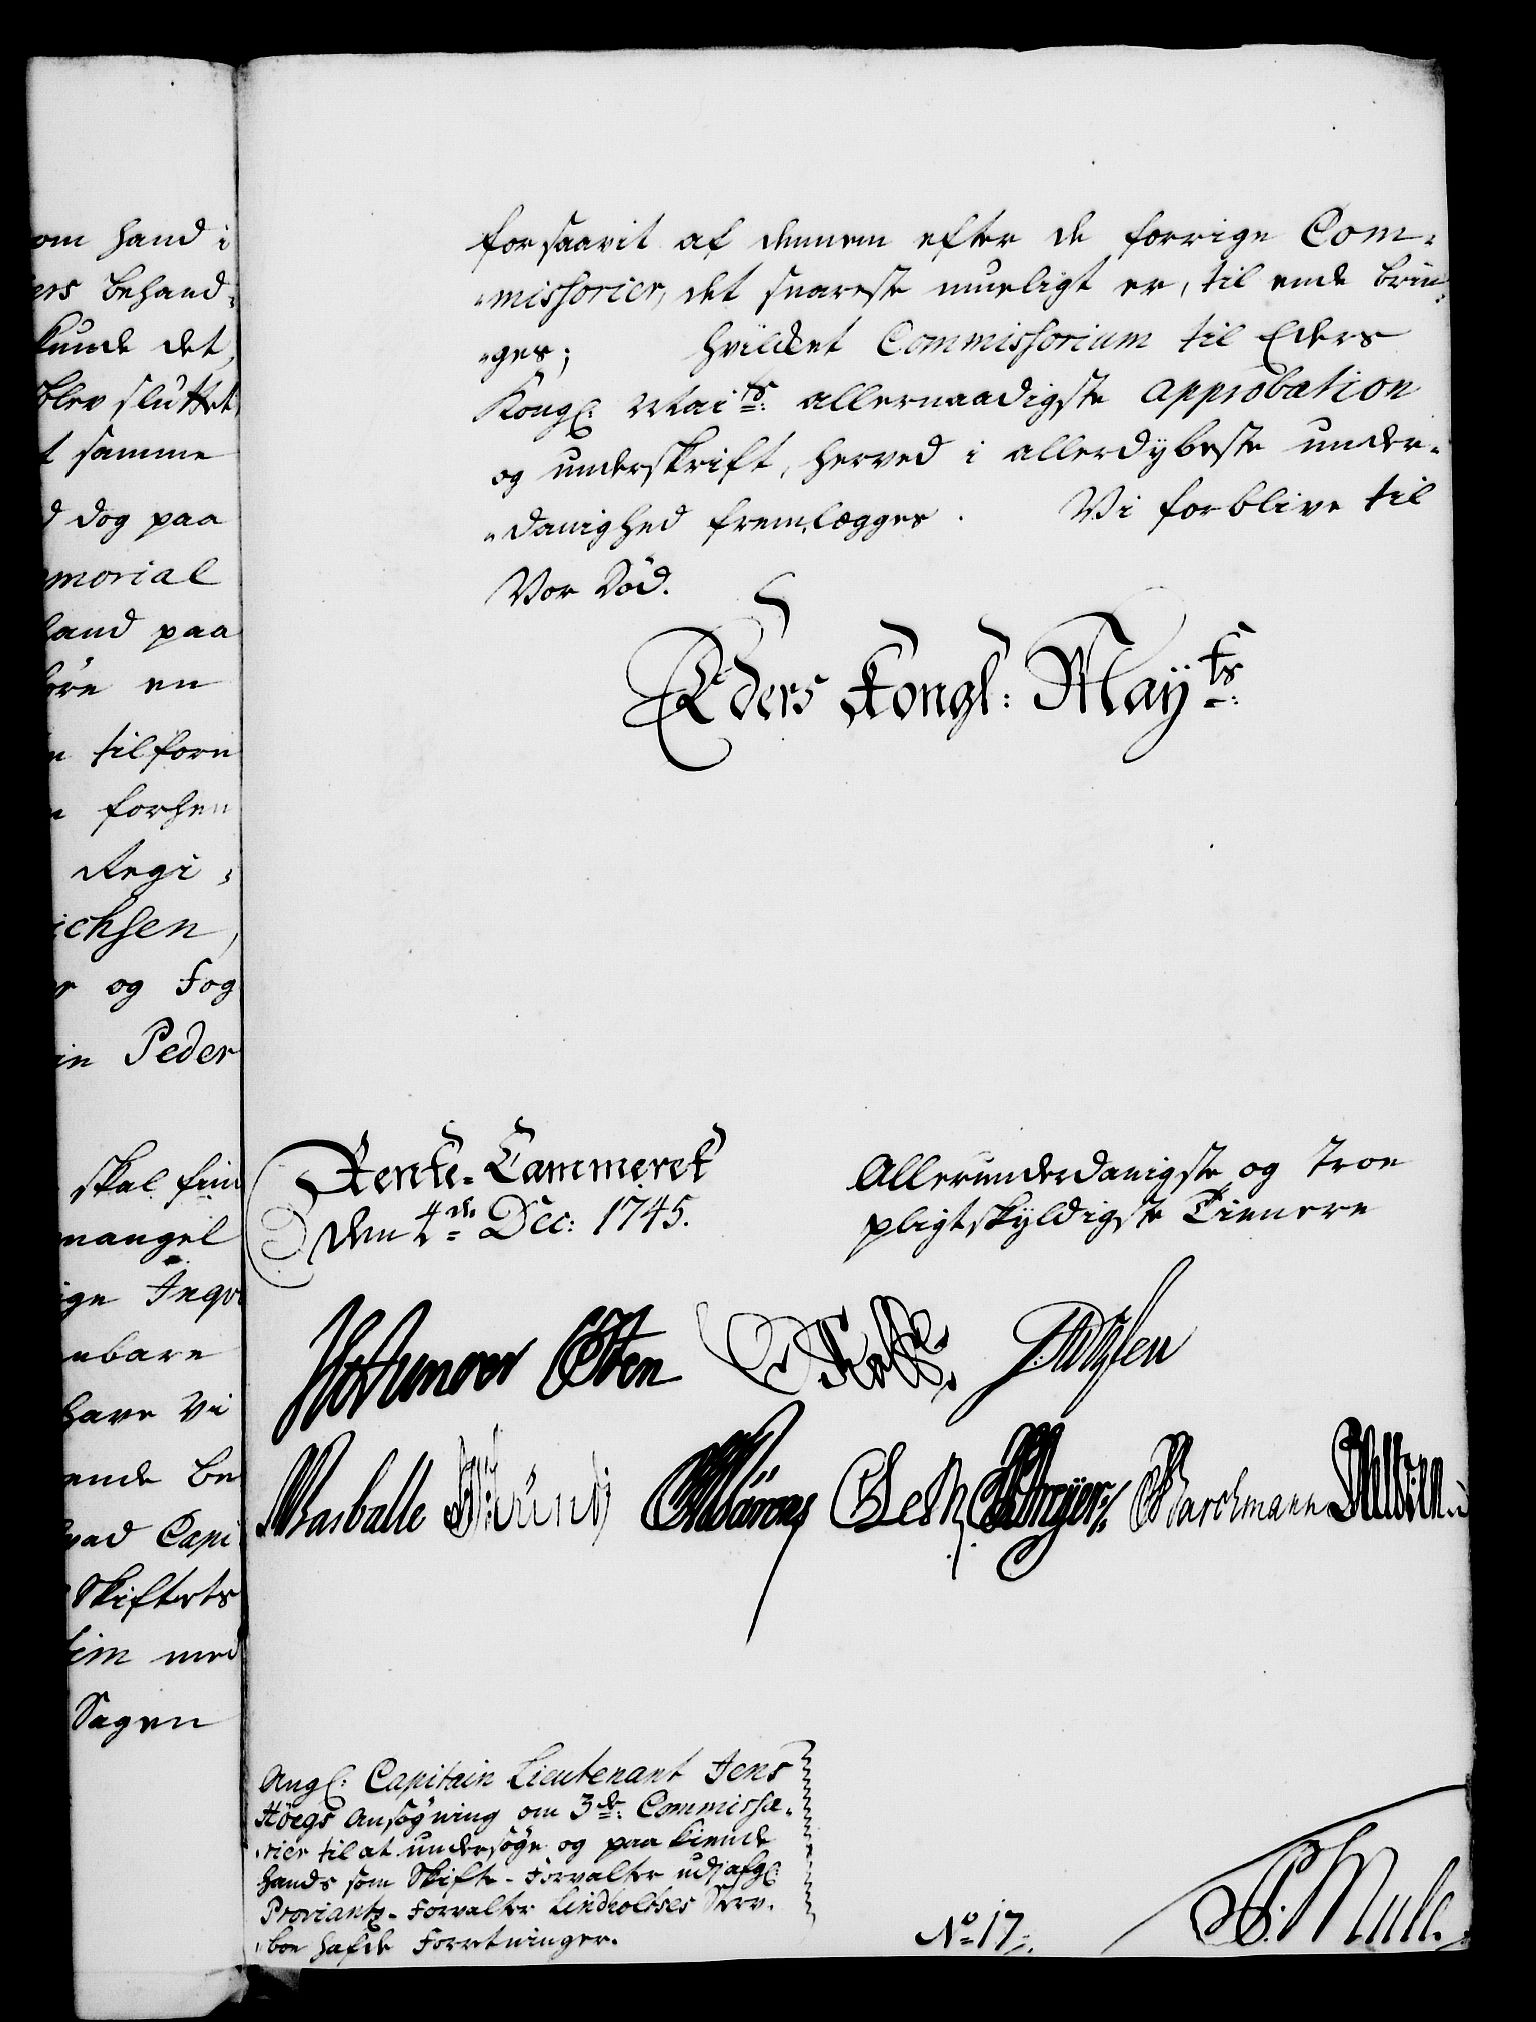 om hand i
ers behand-
kunde det,
blev sluttet
t samme
d dog paa
morial
hand paa
høre en
n tilforn
n forhen
Regi-
ichsen,
er og Fog
in Peder
skal fin
mangel
ige Inqvi
nbare
have vi
ende be
hvad Capi
Skiftets
im med
Sagen
forsaavit af dennem efter de forrige Com-
-missorier, det snareste mueligt er, til ende brin-
-ges; hvilket Commissorium til Eders
Kongl: Maits: allernaadigste approbation
og underskrift, herved i allerdybeste under-
-danighed fremlægges. Vi forblive til
Vor Död.
Eders Kongl: Mayts:
Rente-Cammeret
den 4de Dec: 1745.
Allerunderdanigste og troe
pligtskyldigste Tienere
Holmsted
Basballe
Barchmann
Angl: Capitain Lieutenant Jens
Höegs Ansøgning om 3de: Commissa-
-rier til at undersöge og paa kiende
hands som Skifte-Forvalter udi afgl:
Proviant-Forvalter Lindholtses Sterv-
-boe hafde Forretninger.
No 17.
P. Mule.